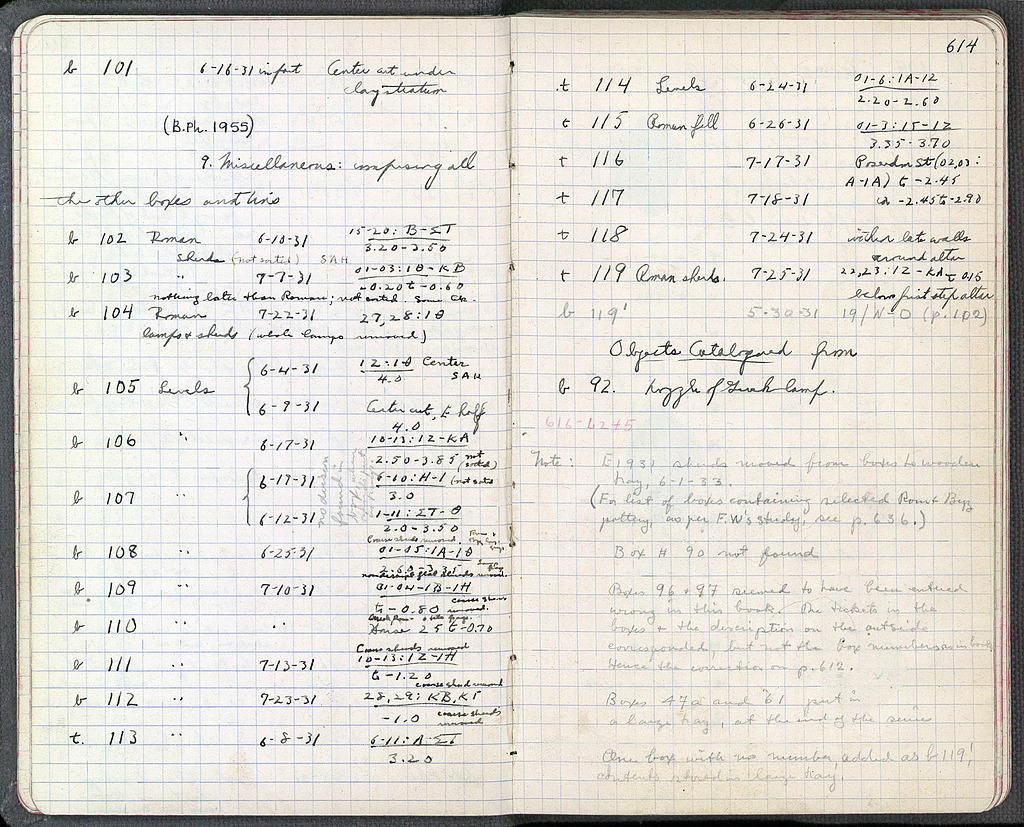 b 101 6-16-31 in part Center cut under
clay stratum
(B.Ph. 1955)
9. Miscellaneous: comprising all
the other boxes and tins
b 102 Roman 6-10-31 15-20: B-ΣΤ
3.20-3.50
sherds (not sorted) SAH
b 103 " 7-7-31 01-03:1Θ-KB
-0.20 to -0.60
nothing later than Roman; not sorted. Some Ck.
b 104 Roman 7-22-31 27,28:1Θ
lamps & sherds (whole lamps removed)
6-4-31 12:1Θ Center
4.0 SAH
b 105 Levels
6-9-31 Center cut, E half
4.0
b 106 " 6-17-31 10-13:1Z-KA
2.50-3.85 (not sorted)
6-17-31 6-10:H-1 (not sorted
3.0
b 107 "
6-12-31 1-11:ΣΤ-Θ
2.0-3.50
Coarse sherds removed.
b 108 " 6-25-31 01-05:1A-1Θ
2.60-3.35
b 109 " 7-10-31 01-04-1B-1H
to -0.80 coarse sherds removed.
b 110 " " House 25 to -0.70
Coarse sherds removed
b 111 " 7-13-31 10-13:1Z-1H
to -1.20
coarse sherds removed
b 112 " 7-23-31 28,29:KB,KΓ
-1.0 coarse sherds removed
t. 113 " 6-8-31 6-11:A-ΣΤ
3.20
614
t 114 Levels 6-24-31 01-6:1A-12
2.20-2.60
t 115 Roman fill 6-26-31 01-3:15-12
3.35-3.70
t 116 7-17-31 Poseidon St (02,03:
A-1A) to -2.45
t 117 7-18-31 do -2.45 to -2.90
t 118 7-24-31 within late walls
around altar
t 119 Roman sherds. 7-25-31 22,23:1Z-KA to 0.15
below first step altar
b 119' 5-30-31 19/W-O (p. 102)
Objects Catalogued from
b 92. Nozzle of Greek lamp.
616-L245
Note: E 1931 sherds moved from boxes to wooden
tray, 6-1-33.
(For list of boxes containing selected Rom & Byz
pottery, as per F.W's study, see p. 636.)
Box # 90 not found
Boxes 96 & 97 seemed to have been entered
wrong in this book. The tickets in the
boxes & the description on the outside
corresponded, but not the box numbers as in book.
Hence the correction on p. 612.
Boxes 47a and 61 put in
a large tray, at the end of the series
One box with no number, added as b 119',
contents stored in large tray.